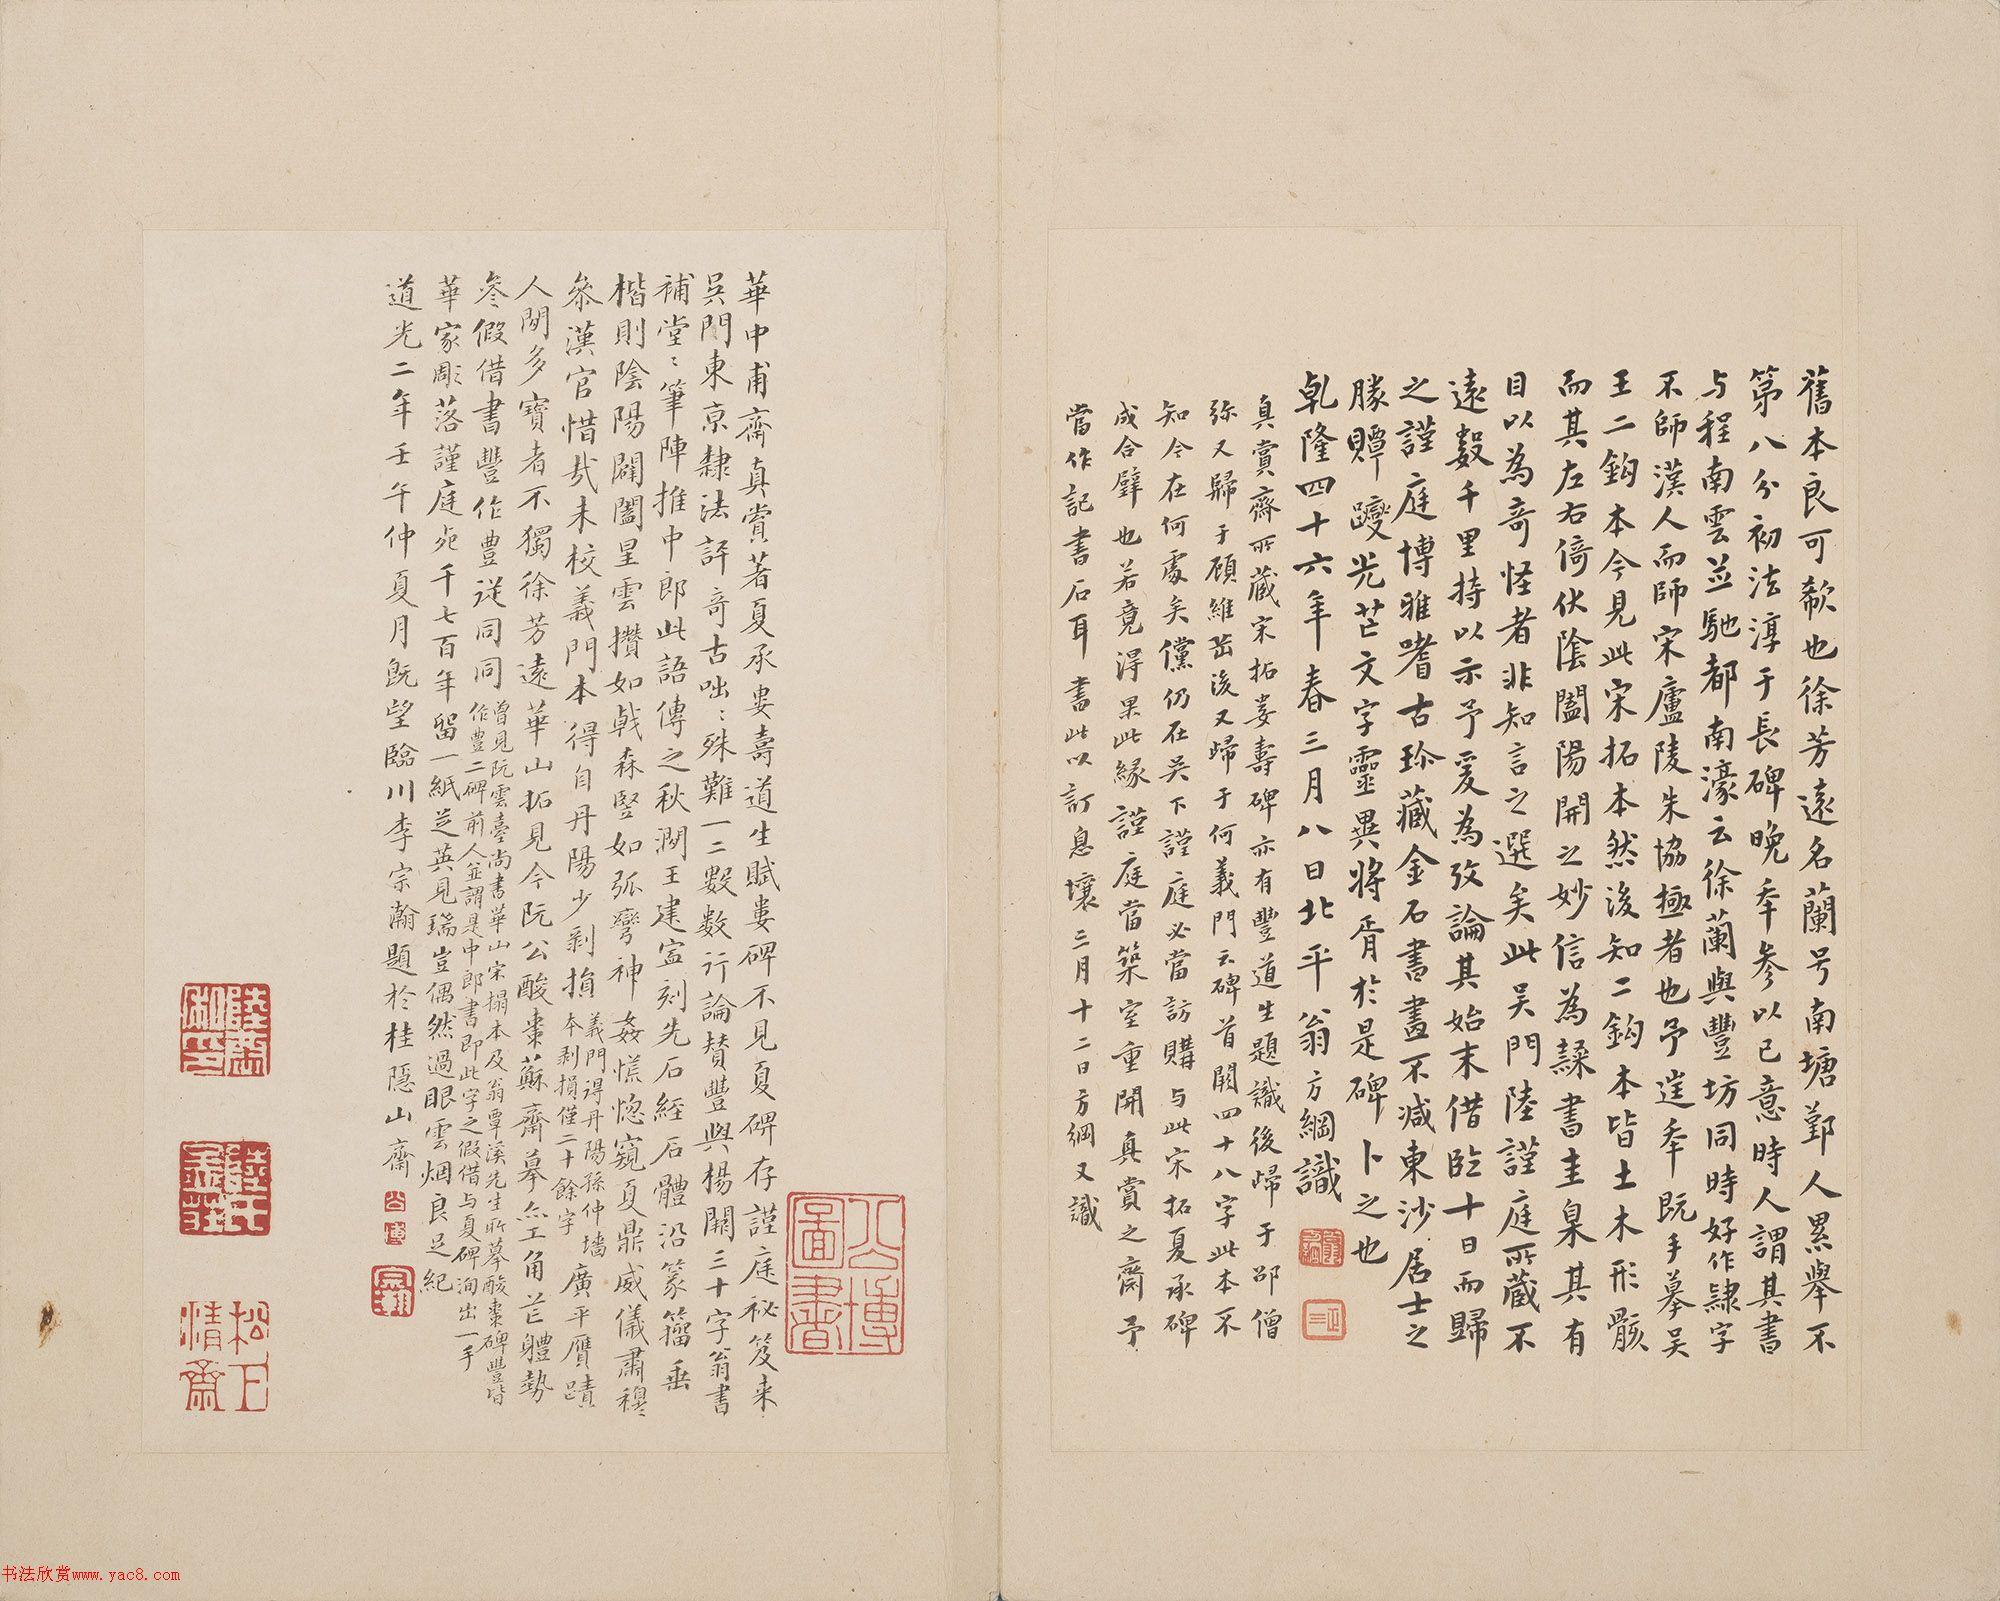 舊本良可欷也徐芳遠名蘭号南塘鄞人累舉不
第八分初法淳于長碑晚年參以己意時人謂其書
与程南雲並馳都南濠云徐蘭與豐坊同時好作隸字
不師漢人而師宋廬陵朱協極者也予逞年既手摹吴
王二鈎本今見此宋拓本然後知二鈎本皆土木形骸
而其左右倚伏陰闔陽開之妙信為隸書圭臬其有
目以為奇怪者非知言之選矣此吴門陸謹庭所藏不
遠數千里持以示予爰為攷論其始末借臨十日而歸
之謹庭博雅嗜古珎藏金石書畫不減東沙居士之
賸贉躞光芒文字靈異將胥於是碑卜之也
乹隆四十六年春三月八日北平翁方綱識
真賞齋所藏宋拓婁壽碑亦有豐道生題識後歸于邵僧
弥又歸于顧維嵒後又歸于何義門云碑首闕四十八字此本不
知今在何處矣儻仍在吴下謹庭必當訪購与此宋拓夏承碑
成合璧也若竟得果此緣謹庭當築室重開真賞之齋予
當作記書石耳書此以訂息壤三月十二日方綱又識
華中甫齋真賞著夏承婁壽道生賦婁碑不見夏碑存謹庭祕笈来
吳門東京隸法評奇古咄〻殊難一二數數行論賛豐與楊闕三十字翁書
補堂〻筆陣推中郎此語傳之秋澗王建寍刻先石經石體沿篆籀垂
楷則陰陽闢闔星雲攢如戟森竪如弧彎神姦慌惚窺夏鼎威儀肅穆
叅漢官惜哉未校義門本得自丹陽少剥損義門得丹陽孫仲墻本剥損僅二十餘字廣平贋蹟
人間多寶者不獨徐芳遠華山拓見今阮公酸棗蘇齋摹亦工角芒體勢
參假借書豐作豊従同同曾見阮雲臺尚書華山宋搨本及翁覃溪先生所摹酸棗碑豐皆作豊二碑前人並謂是中郎書即此字之假借与夏碑洵出一手
華家彫落謹庭宛千七百年留一紙芝英見瑞豈偶然過眼雲烟良足紀
道光二年壬午仲夏月既望臨川李宗瀚題於桂隱山齋
公博
公博圖書
松下清齋
书法欣赏www.yac8.com